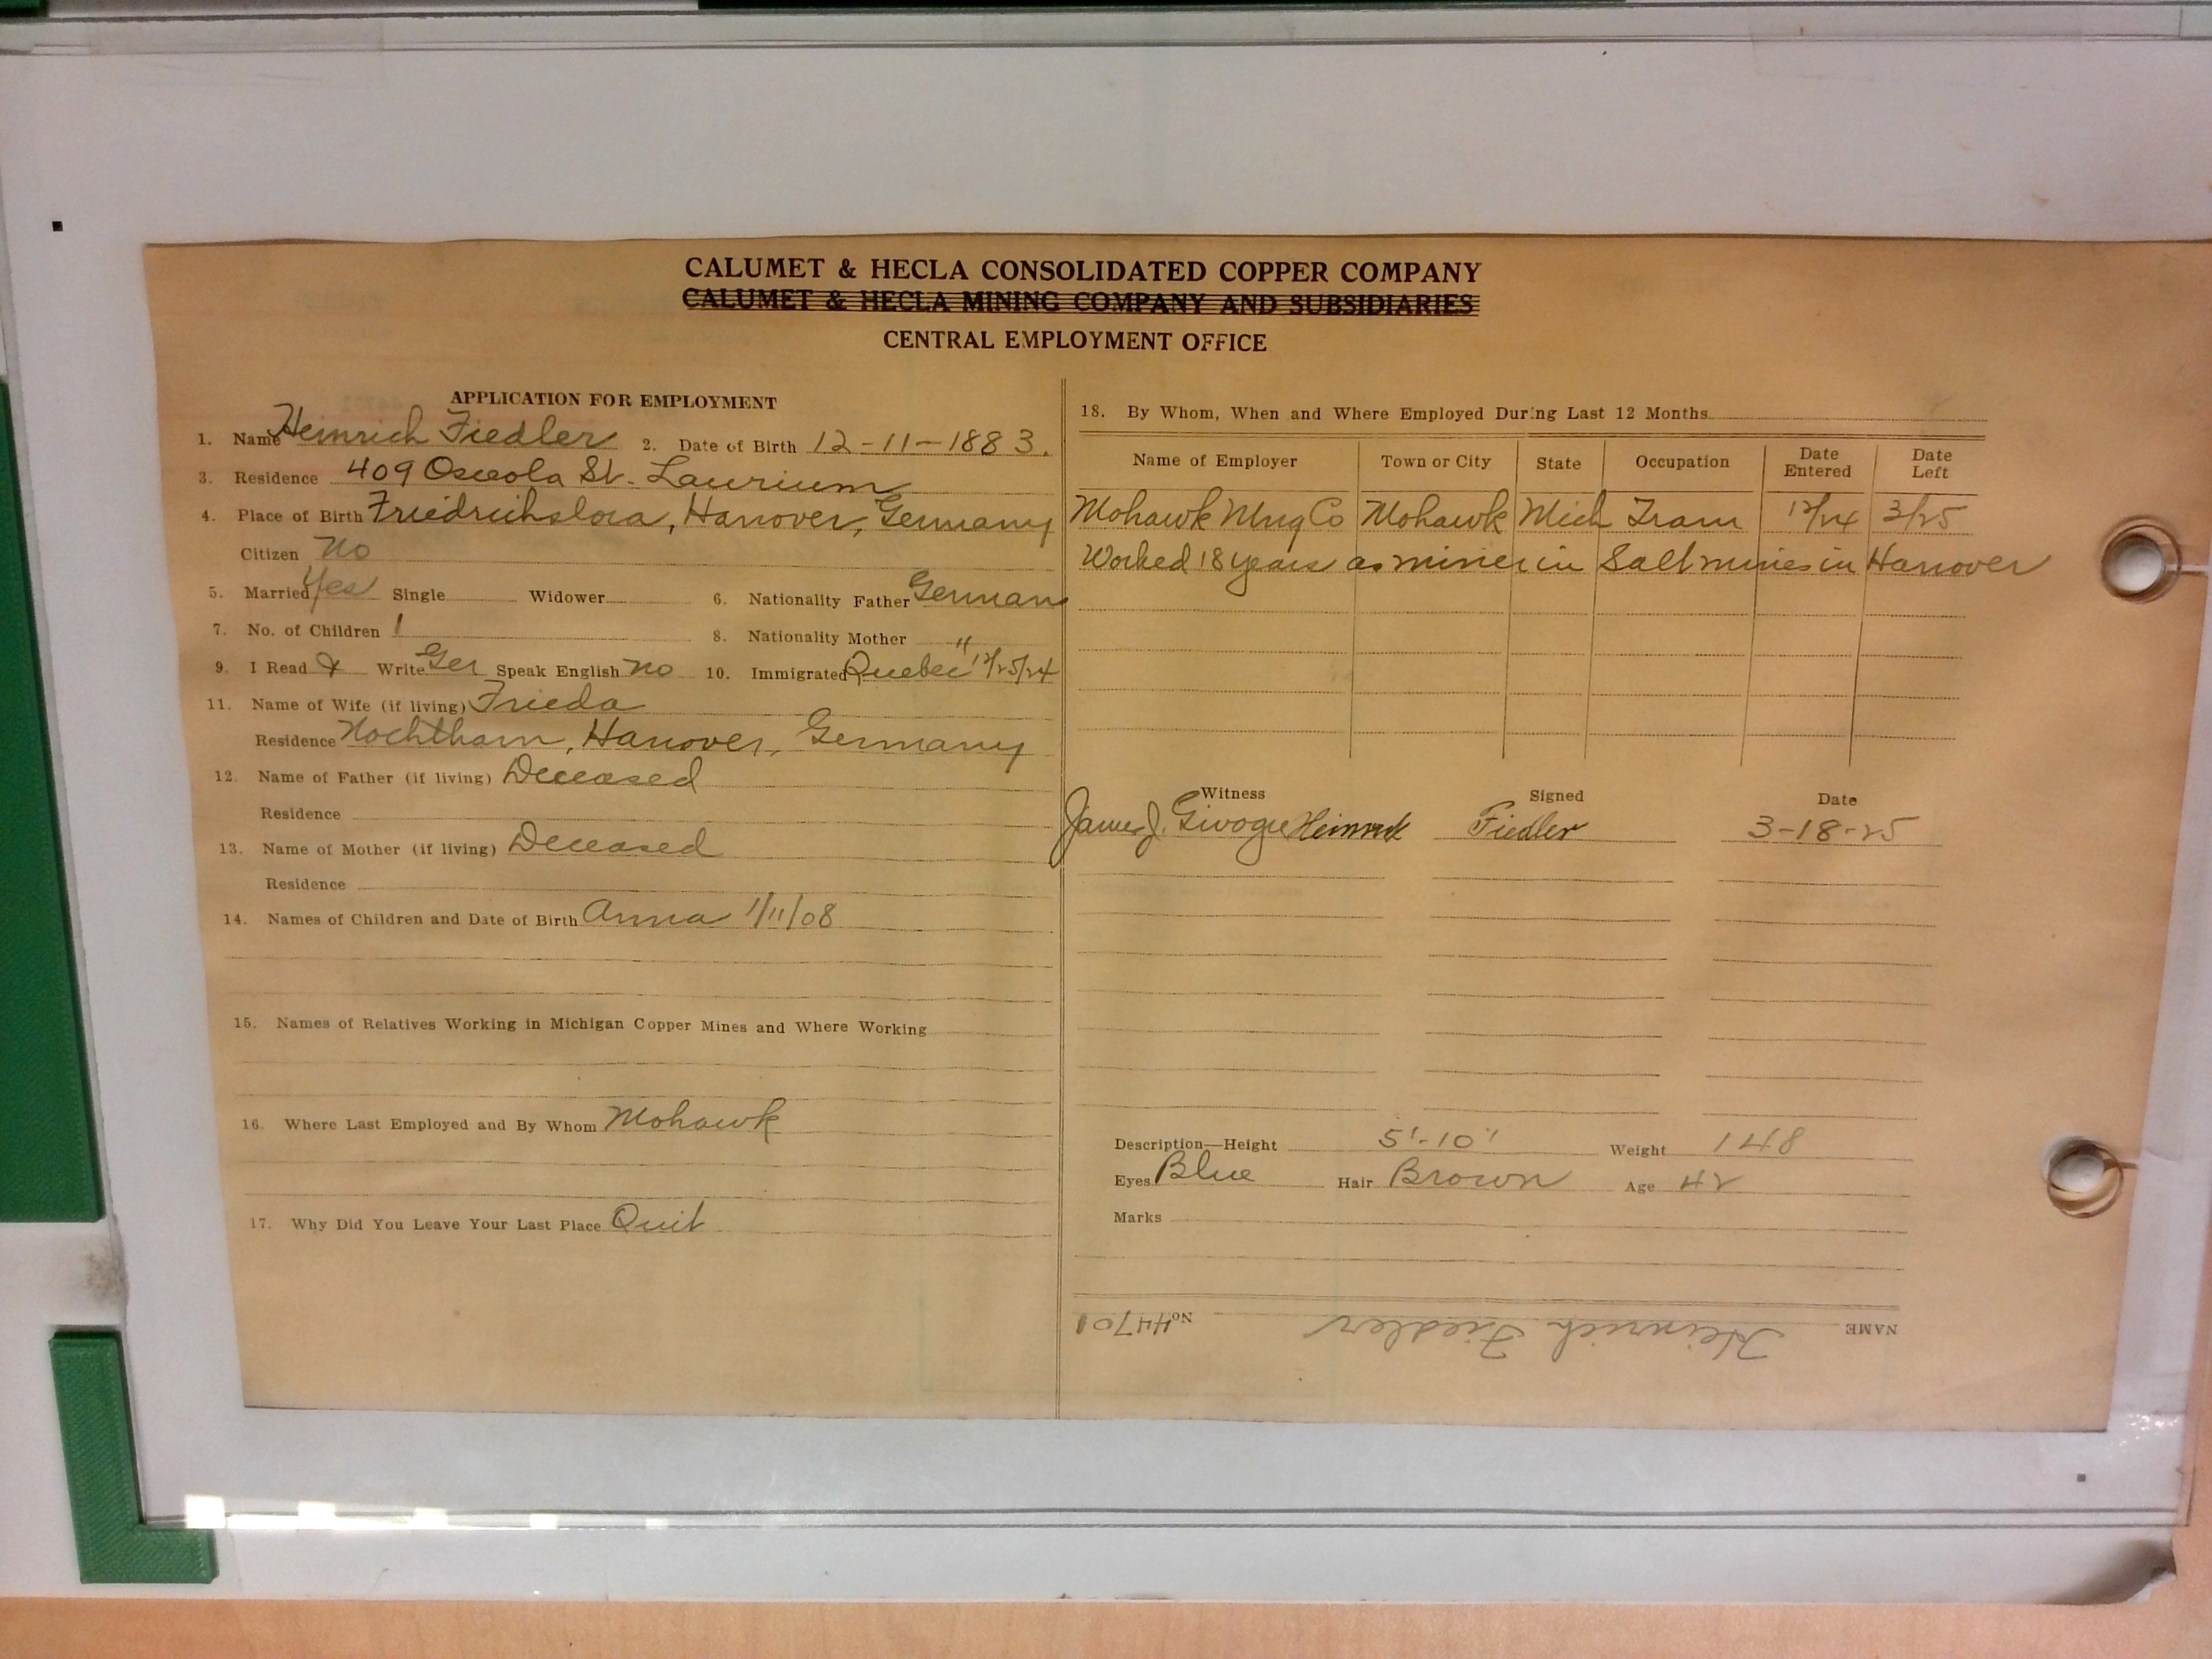 CALUMET & HECLA CONSOLIDATED COPPER COMPANY
CALUMET & HECLA MINING COMPANY AND SUBSIDIARIES
CENTRAL EMPLOYMENT OFFICE
APPLICATION FOR EMPLOYMENT
1. Name Heinrich Fiedler 2. Date of Birth 12-11-1883.
3. Residence 409 Osceola St. Laurium
4. Place of Birth Hanover, Germany
Citizen No
5. Married Yes Single Widower 6. Nationality Father German
7. No. of Children 1 8. Nationality Mother "
9. I Read & Write Ger Speak English no 10. Immigrated Quebec 12/25/24
11. Name of Wife (if living) Frieda
Residence Hanover, Germany
12. Name of Father (if living) Deceased
Residence
13. Name of Mother (if living) Deceased
Residence
14. Names of Children and Date of Birth Anna 1/11/08
15. Names of Relatives Working in Michigan Copper Mines and Where Working
16. Where Last Employed and By Whom Mohawk
17. Why Did You Leave Your Last Place Quit
18. By Whom, When and Where Employed During Last 12 Months
Name of Employer Town or City State Occupation Date Entered Date Left
Mohawk Mng Co Mohawk Mich Tram 12/24 3/25
Worked 18 years as miner in Salt mines in Hanover
Witness Signed Date
James J. Heinrich Fiedler 3-18-25
Description—Height 5'-10" Weight 148
Eyes Blue Hair Brown Age 42
Marks
NAME Heinrich Fiedler No. 44701